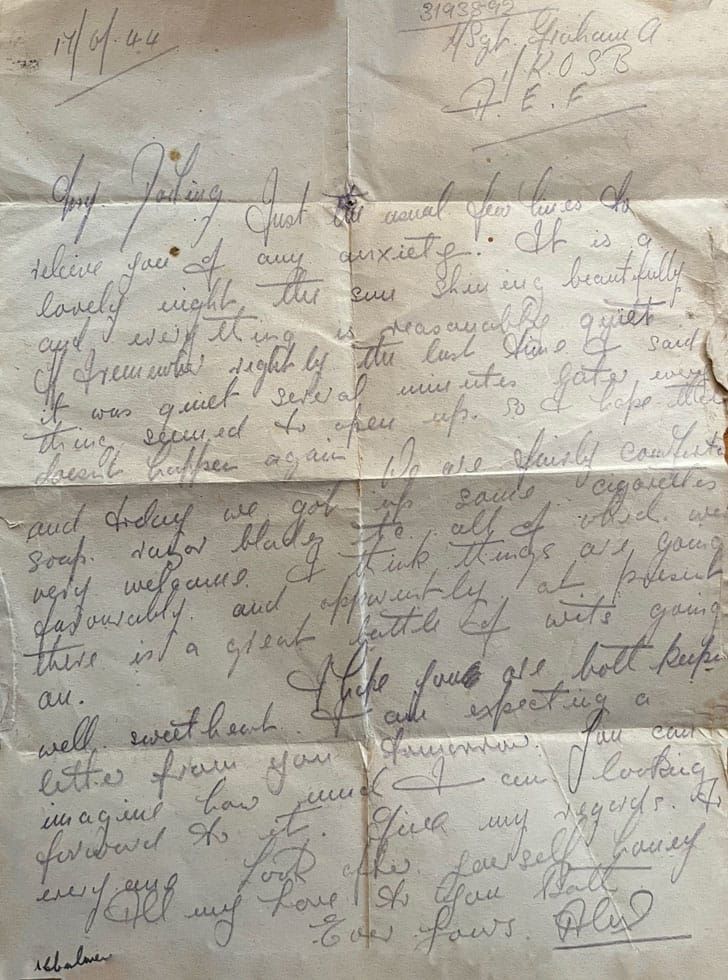 17/6/44
3193892
A/Sgt. Graham A
1/K.O.S.B
A. E. F
My Darling Just the usual few lines to
releive you of any anxiety. It is a
lovely night, the sun shining beautifully
and everything is reasonable quiet
If I remember rightly the last time I said
it was quiet several minutes later every
thing seemed to open up. so I hope that
doesnt happen again We are fairly comforta
and today we got up some cigarettes
soap razor blades etc. all of which were
very welcome. I think things are going
favourably and apparently at present
there is a great battle of wits going
on. I hope you are both keepi
well sweetheart. I am expecting a
letter from you tomorrow. You can
imagine how much I am looking
forward to it. Give my regards to
everyone look after yourself honey
All my love to you Both
Ever Yours.